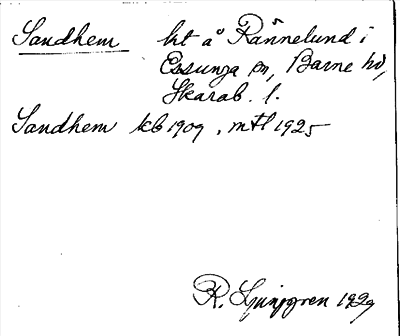 Sandhem ht å Rånnelund i
Essunga sn, Barne hd,
Skarab. l.
Sandhem kb 1909, mtl 1925
R. Ljunggren 1929